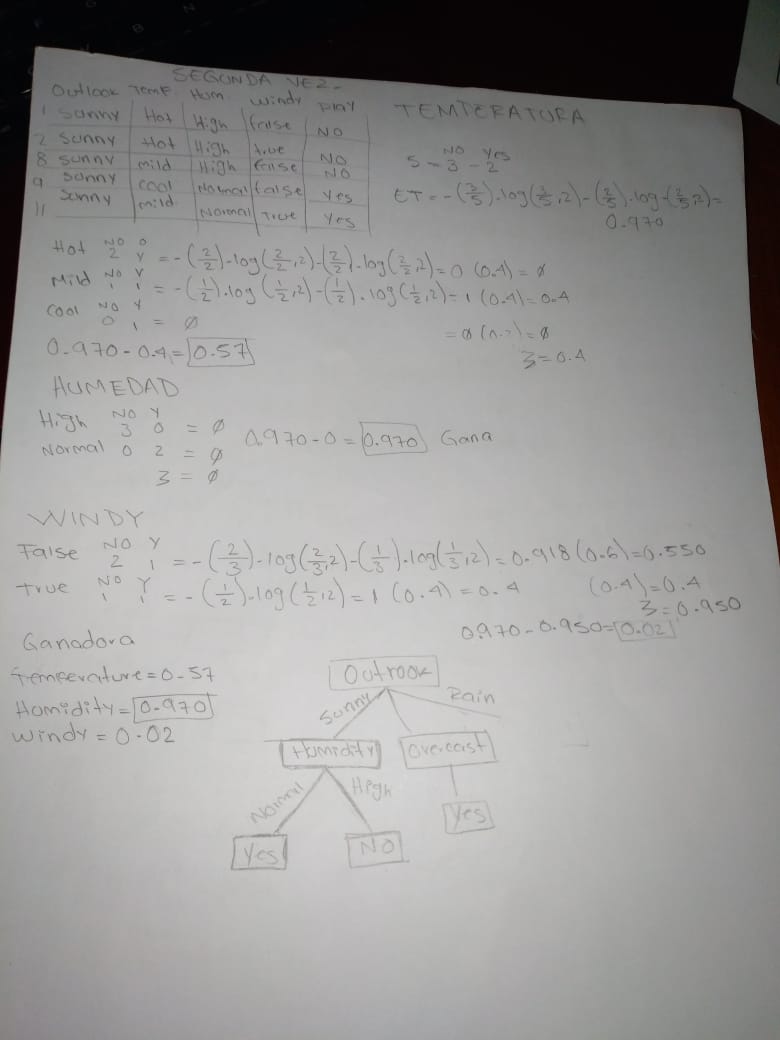 SEGUNDA VEZ.
Outlook Temp. Hum. Windy Play
1 Sunny Hot High false NO
2 Sunny Hot High true NO
8 Sunny mild High false NO
9 Sunny cool Normal false Yes
11 Sunny mild Normal True Yes
TEMPERATURA
NO Yes
5 - 3 - 2
ET = -(3/5).log(3/5,2)-(2/5).log-(2/5,2)=
0.970
Hot NO 0
2 Y = -(2/2)-log(2/2,2)-(2/2)-log(2/2,2)=0 (0.4)=Ø
Mild NO Y
1 1 = -(1/2).log(1/2,2)-(1/2).log(1/2,2)=1 (0.4)=0.4
Cool NO Y
0 1 = Ø
=Ø (0.2)=Ø
3=0.4
0.970-0.4=0.57
HUMEDAD
High NO Y
3 0 = Ø
Normal 0 2 = Ø
3 = Ø
0.970-0=0.970 Gana
WINDY
False NO Y
2 1 = -(2/3)-log(2/3,2)-(1/3).log(1/3,2)=0.918(0.6)=0.550
true NO Y
1 1 = -(1/2)-log(1/2,2)=1 (0.4)=0.4
(0.4)=0.4
3=0.950
0.970-0.950=0.02
Ganadora
Temperature=0-57
Homidity=0-970
Windy=0-02
Outrook
Sunny Rain
Humidity Overcast
Normal High
Yes NO Yes